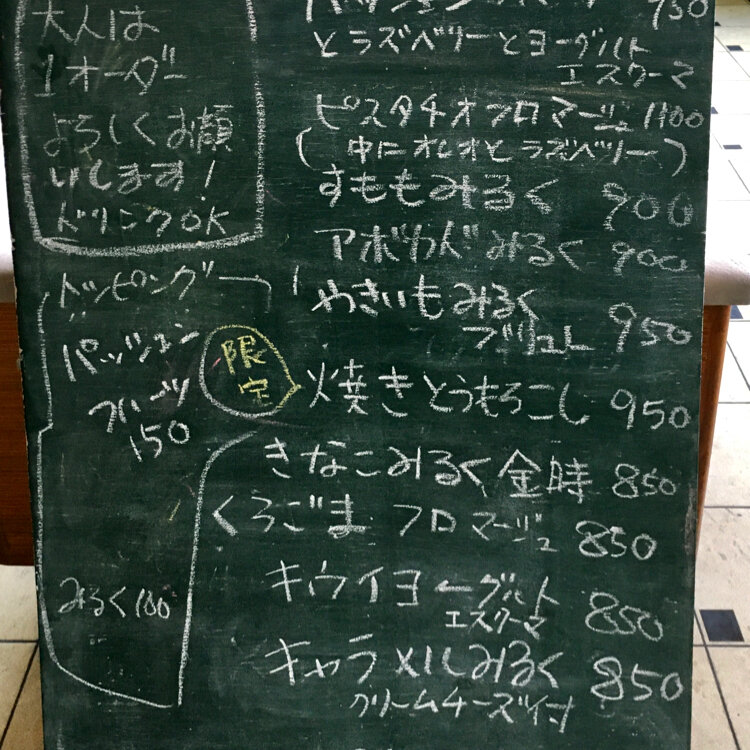 大人は
1オーダー
よろしくお願
いします!
ドリンクOK
トッピング
パッション
フルーツ
150
みるく100
パッションフルーツ 950
とラズベリーとヨーグルト
エスプーマ
ピスタチオフロマージュ 1100
(中にオレオとラズベリー)
すももみるく 900
アボカドみるく 900
やきいもみるく
ブリュレ 950
限定
焼きとうもろこし 950
きなこみるく金時 850
くろごまフロマージュ 850
キウイヨーグルト
エスプーマ 850
キャラメルみるく 850
クリームチーズ付